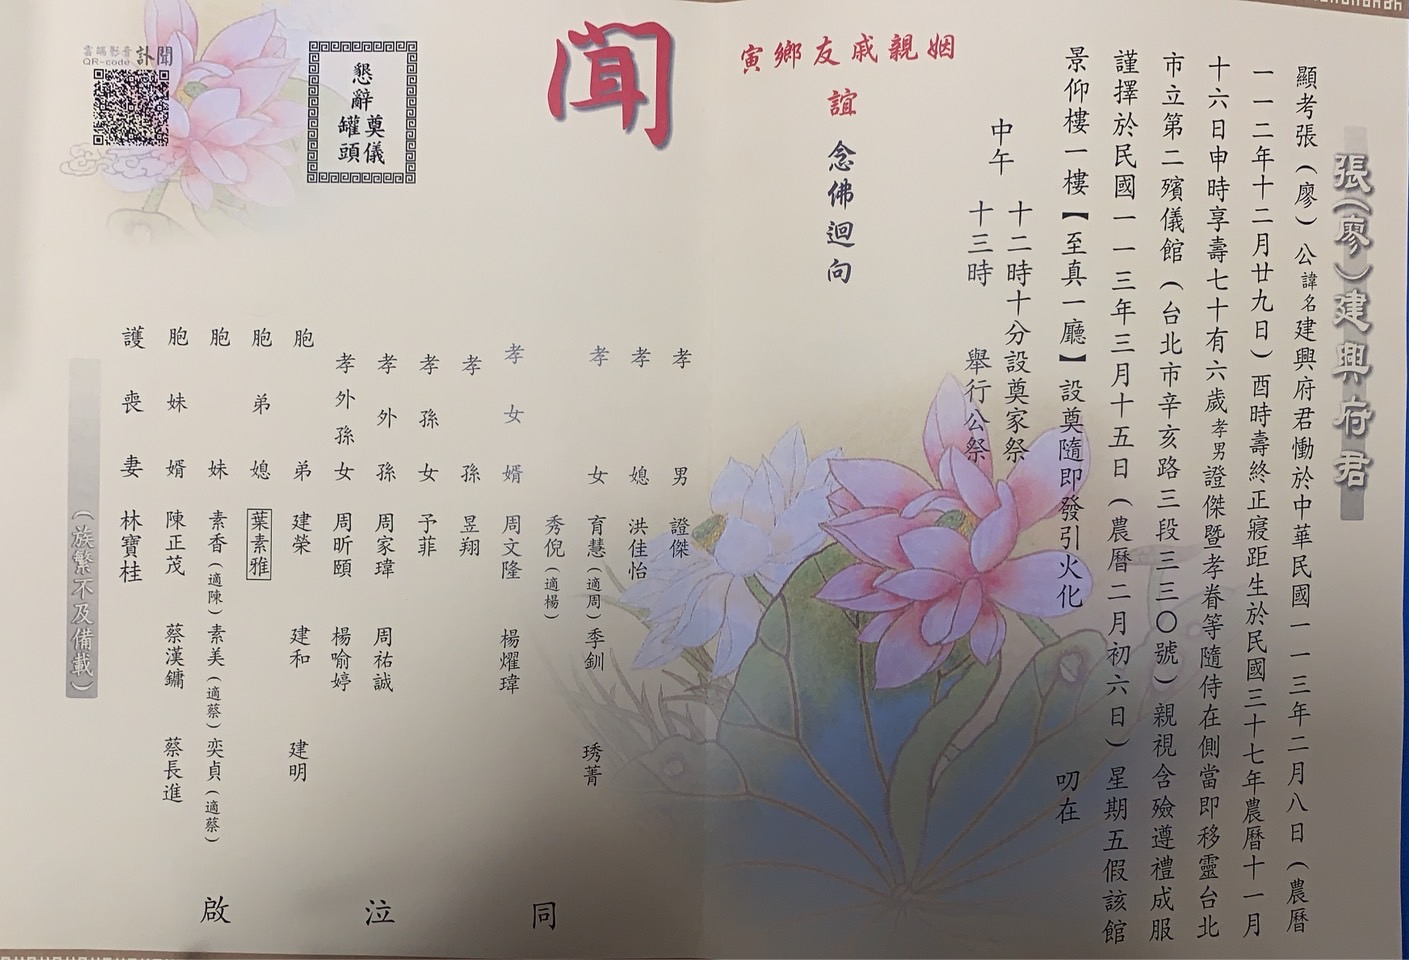 張(廖)建興府君
顯考張(廖)公諱名建興府君慟於中華民國一一三年二月八日(農曆
一一二年十二月廿九日)酉時壽終正寢距生於民國三十七年農曆十一月
十六日申時享壽七十有六歲孝男證傑暨孝眷等隨侍在側當即移靈台北
市立第二殯儀館(台北市辛亥路三段三三〇號)親視含殮遵禮成服
謹擇於民國一一三年三月十五日(農曆二月初六日)星期五假該館
景仰樓一樓【至真一廳】設奠隨即發引火化 叨在
中午 十二時十分設奠家祭
十三時 舉行公祭
姻親戚友鄉寅
誼 念佛迴向
聞
懇辭
奠儀
罐頭
訃聞
雲端影音
QR-code
孝男 證傑
孝媳 洪佳怡
孝女 育慧(適周) 季釧 琇菁
秀倪(適楊)
孝女婿 周文隆 楊燿瑋
孝孫 昱翔
孝孫女 予菲
孝外孫 周家瑋 周祐誠
孝外孫女 周昕頤 楊喻婷
胞弟 建榮 建和 建明
胞弟媳 葉素雅
胞妹 素香(適陳) 素美(適蔡) 奕貞(適蔡)
胞妹婿 陳正茂 蔡漢鏞 蔡長進
護喪妻 林寶桂
(族繁不及備載)
同泣啟